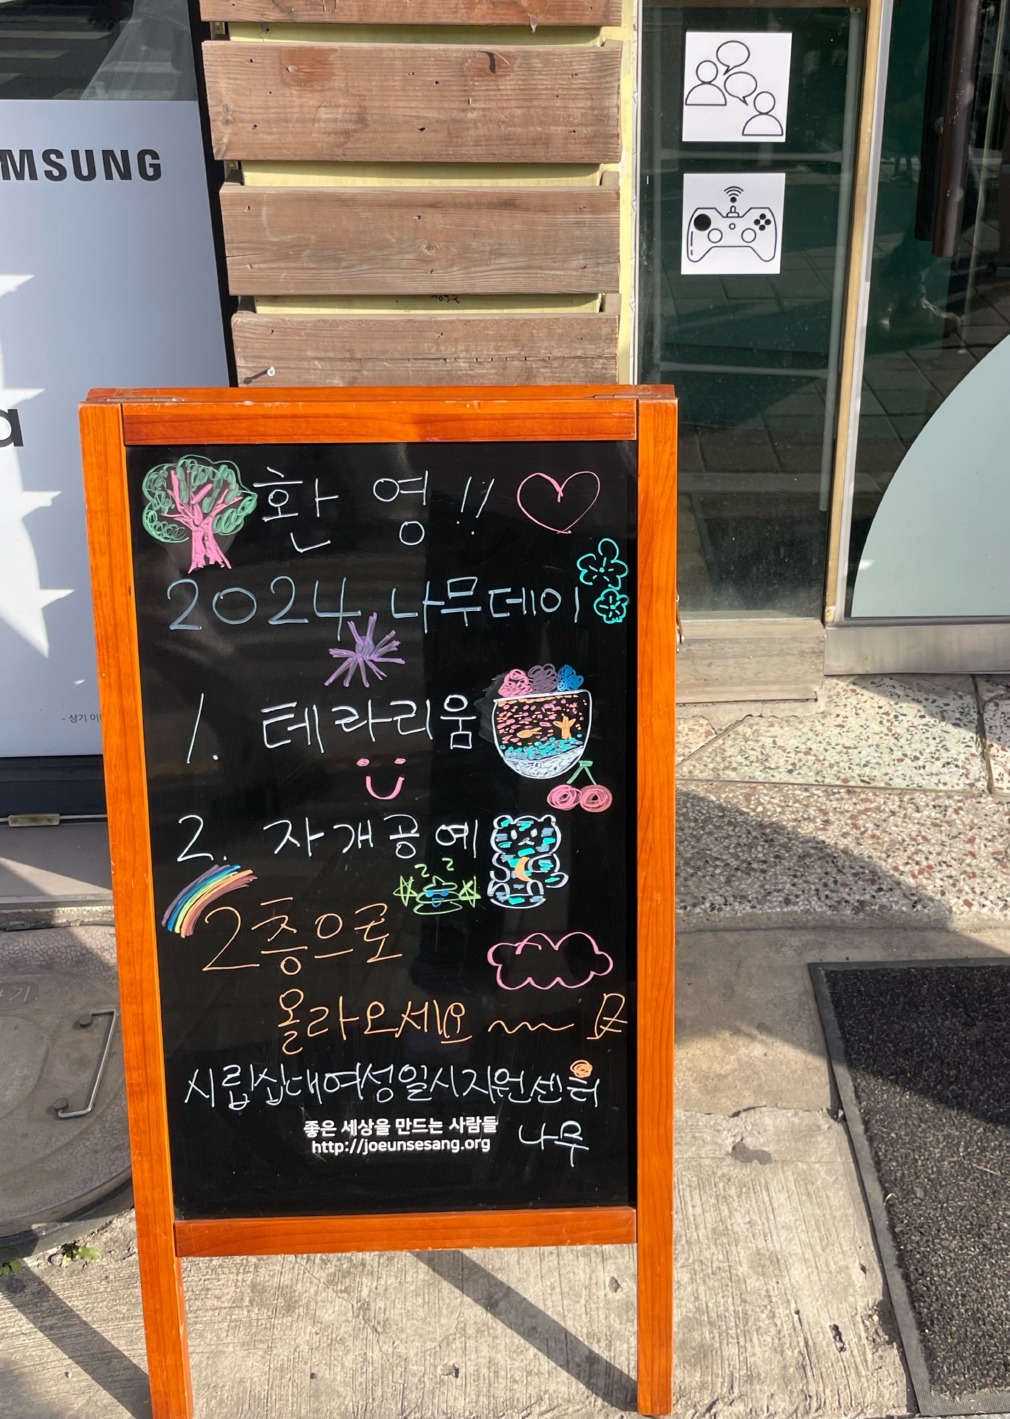 MSUNG
a
환영!!
2024 나무데이
1. 테라리움
2. 자개공예
2층으로
올라오세요~
시립십대여성일시지원센터
좋은 세상을 만드는 사람들
나무
http://joeunsesang.org
- 상기 이